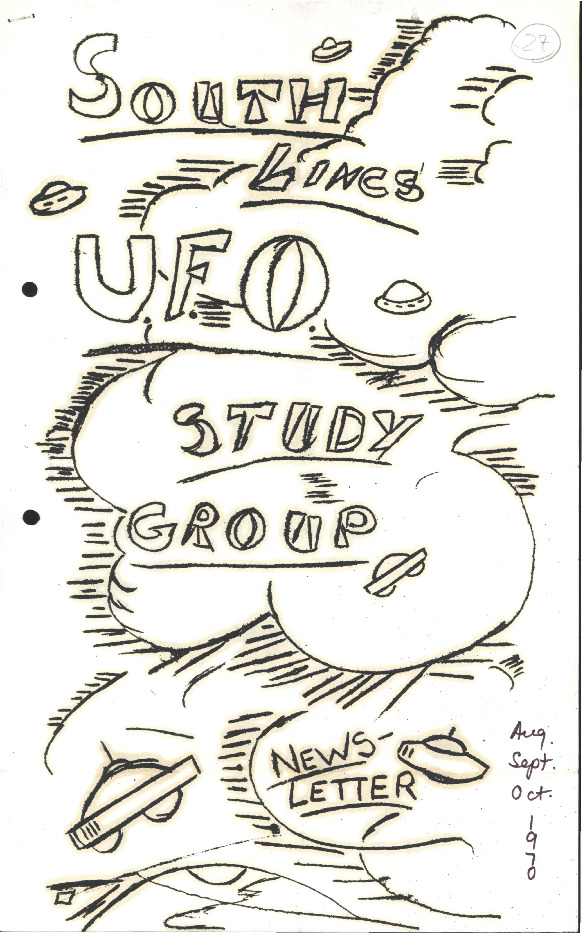 27
SOUTH
LINCS'
U.F.O.
STUDY
GROUP
NEWS-
LETTER
Aug.
Sept.
Oct.
1
9
7
0